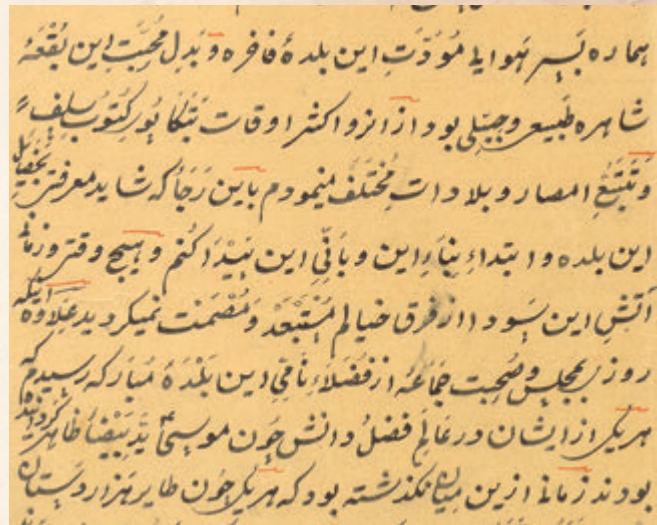 هماره بسر هوایا مَوَدَّتِ این بلدهٔ فاخره و بَدِل مُحبّتِ این بُقْعَهٔ
شاهره طَبیعی وجِبِلّی بود از انرو اکثر اوقات بتکاپوی کُتُوب سلف
وَتَتَبُّعِ امصار و بلادات مُختَلَف منمودم باین رَجَا که شاید معرفتی بتَفصیل
این بلده و ابتداءِ بِنَاءِ این و بانیِ این پَیْدَا کُنم و هیچ وقتی و زمان
آتشِ این سَودا از فرق خیالم مُسْتَبْعَد و مُضْمَنت نمیکردید عَلاوه اینکه
روزی بمجلس و صُحبت جماعهٔ از فُضَلاءِ نامیِ این بَلْدَهٔ مُبارکه رسیدم که
هریکی از ایشان در عَالَمِ فضلُ دانش چون موسیٰ یَدِ بَیْضَا ظاهر کرده
بودند زمانی ازین میان نکذشته بود که هریکی چون طایر هزار دستان